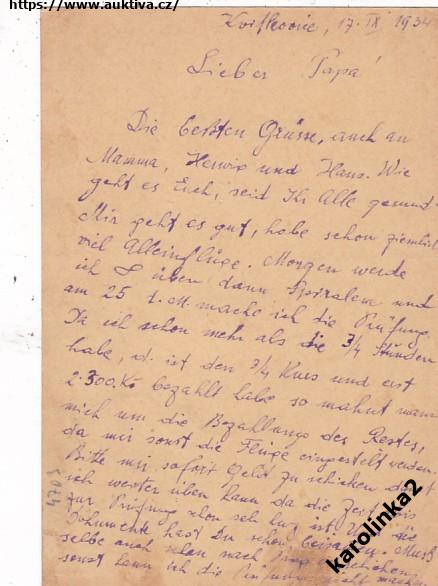 https://www.auktiva.cz/
17. IX 1934
Lieber Papa!
Die besten Grüsse, auch an
Mamma, Herwig und Hans. Wie
geht es Euch, seid Ihr Alle gesund.
Mir geht es gut, habe schon ziemlich
viel Alleinflüge. Morgen werde
ich 8 üben dann Spiralen und
am 25 d. M. mache ich die Prüfung.
Da ich schon mehr als die 3/4 Stunden
habe, d. ist den 3/4 Kurs und erst
2.300 Kč bezahlt habe so mahnt man
mich um die Bezahlung des Restes,
da mir sonst die Flüge eingestellt werden.
Bitte mir sofort Geld zu schicken damit
ich weiter üben kann da die Zeit bis
zur Prüfung schon seh kurz ist
Dokumente hast Du schon
selbe auch schon nach
sonst kann ich die machen
4703
karolinka2